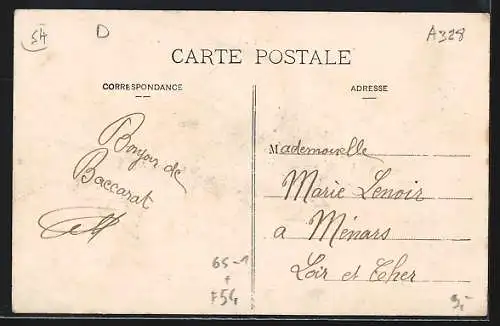 54 D A328
CARTE POSTALE
CORRESPONDANCE
ADRESSE
Bonjour de
Baccarat
Mademoiselle
Marie Lenoir
a Ménars
Loir et Cher
65-1
+
F54
3,-